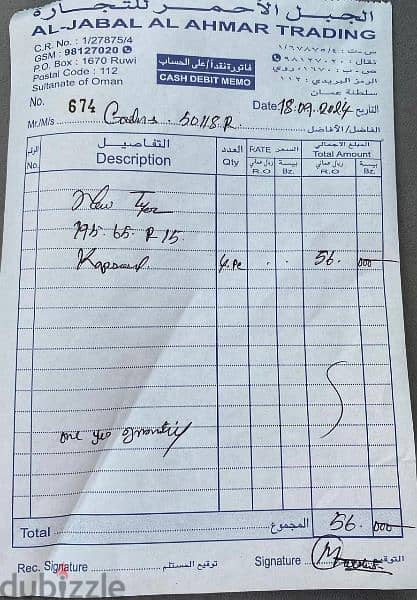 الجبل الأحمر للتجارة
AL-JABAL AL AHMAR TRADING
C.R. No. : 1/27875/4
GSM : 98127020
P.O. Box : 1670 Ruwi
Postal Code : 112
Sultanate of Oman
فاتورة نقداً / على الحساب
CASH DEBIT MEMO
س.ت : ١/٢٧٨٧٥/٤
نقال : ٩٨١٢٧٠٢٠
ص.ب : ١٦٧٠ روي
الرمز البريدي : ١١٢
سلطنة عمان
No. 674 Date: 18.09.2024 التاريخ
Mr./M/s 50118 R. الفاضل / الأفاضل
الرقم التفاصيل العدد RATE السعر المبلغ الاجمالي
No. Description Qty Total Amount
ريال عماني بيسة ريال عماني بيسة
R.O Bz. R.O Bz.
New Tyre
195.65.R15
4.Pc 56. 000
one
Total المجموع 56. 000
Rec. Signature توقيع المستلم Signature التوقيع
dubizzle